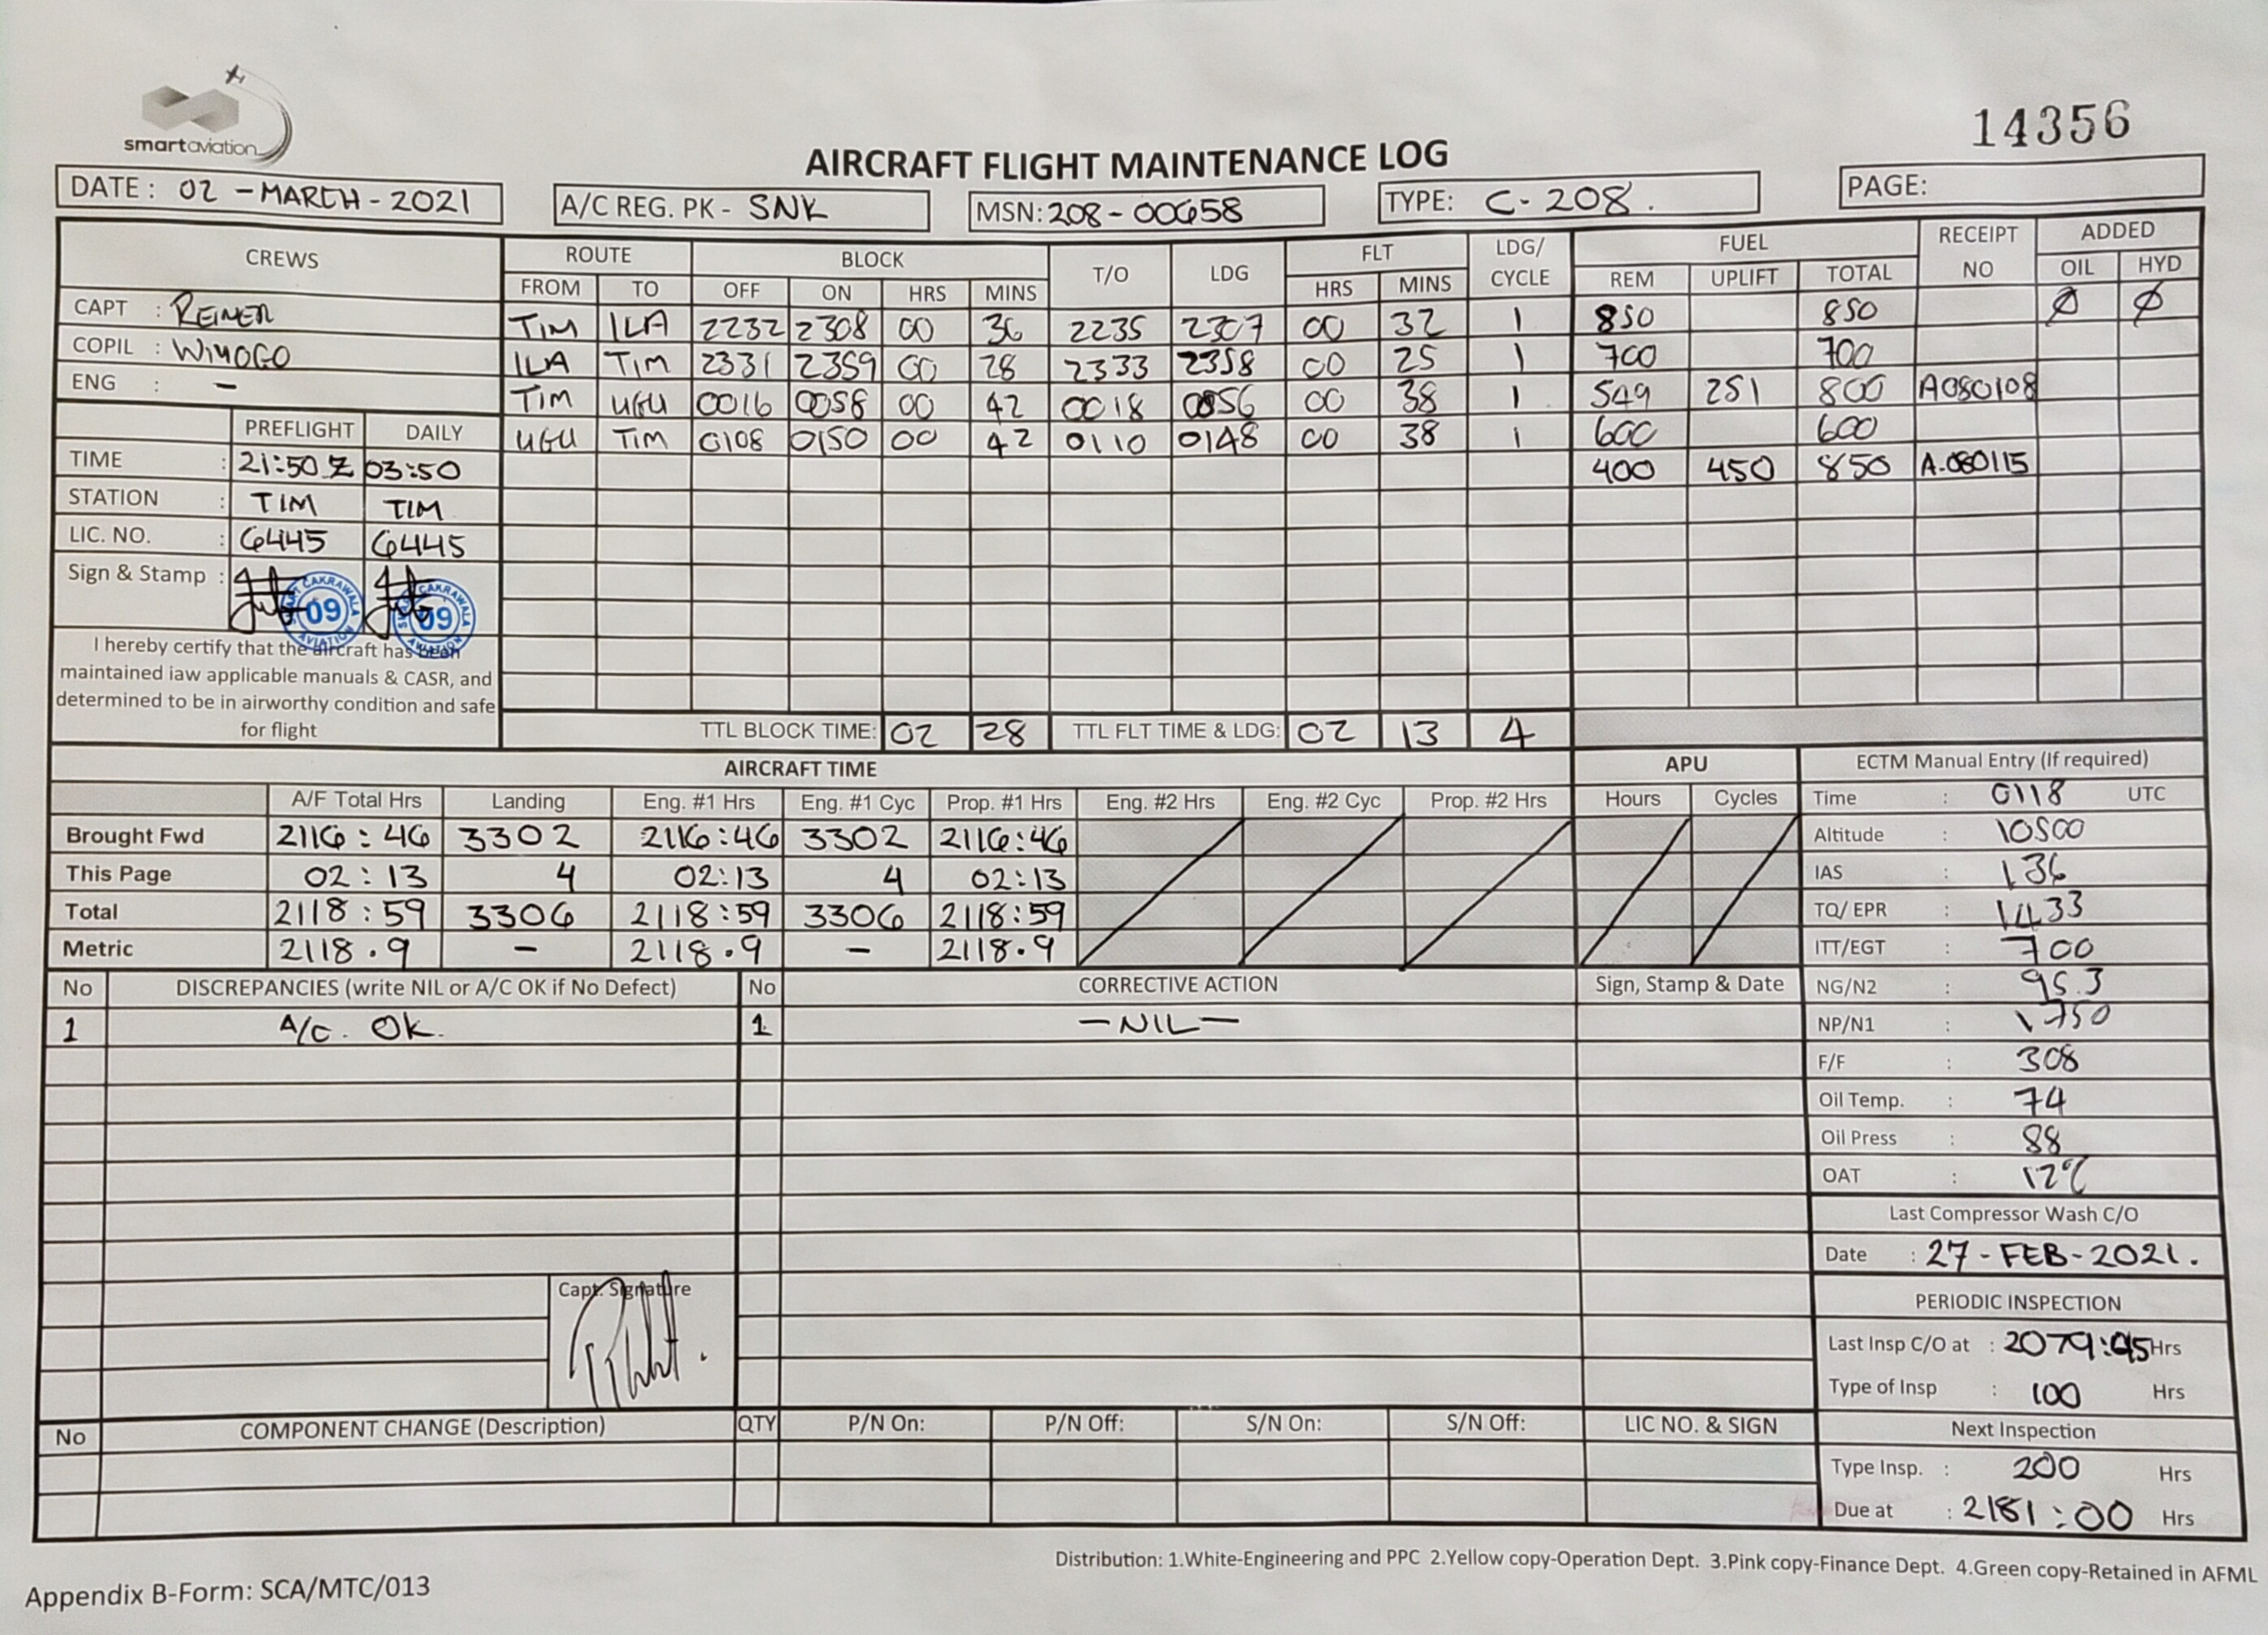 smartaviation
14356
AIRCRAFT FLIGHT MAINTENANCE LOG
DATE : 02 - MARCH - 2021
A/C REG. PK - SNK
MSN: 208 - 00658
TYPE: C - 208 .
PAGE:
CREWS
ROUTE BLOCK T/O LDG FLT LDG/ CYCLE FUEL RECEIPT NO ADDED
FROM TO OFF ON HRS MINS HRS MINS REM UPLIFT TOTAL OIL HYD
CAPT : REINER
COPIL : WIYOGO
ENG : -
TIM ILA 2232 2308 00 36 2235 2307 00 32 1 850 850 Ø Ø
ILA TIM 2331 2359 00 28 2333 2358 00 25 1 700 700
TIM UGU 0016 0058 00 42 0018 0056 00 38 1 549 251 800 A080108
UGU TIM 0108 0150 00 42 0110 0148 00 38 1 600 600
400 450 850 A.080115
PREFLIGHT DAILY
TIME : 21:50 Z 03:50
STATION : TIM TIM
LIC. NO. : 6445 6445
Sign & Stamp :
SMART CAKRAWALA AVIATION 09
SMART CAKRAWALA AVIATION 09
I hereby certify that the aircraft has been
maintained iaw applicable manuals & CASR, and
determined to be in airworthy condition and safe
for flight
TTL BLOCK TIME: 02 28 TTL FLT TIME & LDG: 02 13 4
AIRCRAFT TIME APU
A/F Total Hrs Landing Eng. #1 Hrs Eng. #1 Cyc Prop. #1 Hrs Eng. #2 Hrs Eng. #2 Cyc Prop. #2 Hrs Hours Cycles
Brought Fwd 2116 : 46 3302 2116:46 3302 2116:46
This Page 02 : 13 4 02:13 4 02:13
Total 2118 : 59 3306 2118 : 59 3306 2118:59
Metric 2118 . 9 - 2118 . 9 - 2118.9
ECTM Manual Entry (If required)
Time : 0118 UTC
Altitude : 10500
IAS : 136
TQ/ EPR : 1433
ITT/EGT : 700
NG/N2 : 95.3
NP/N1 : 1750
F/F : 308
Oil Temp. : 74
Oil Press : 88
OAT : 12°C
Last Compressor Wash C/O
Date : 27 - FEB - 2021 .
PERIODIC INSPECTION
Last Insp C/O at : 2079:45 Hrs
Type of Insp : 100 Hrs
Next Inspection
Type Insp. : 200 Hrs
Due at : 2181 : 00 Hrs
No DISCREPANCIES (write NIL or A/C OK if No Defect) No CORRECTIVE ACTION Sign, Stamp & Date
1 A/C. OK. 1 - NIL -
Capt. Signature
No COMPONENT CHANGE (Description) QTY P/N On: P/N Off: S/N On: S/N Off: LIC NO. & SIGN
Distribution: 1.White-Engineering and PPC 2.Yellow copy-Operation Dept. 3.Pink copy-Finance Dept. 4.Green copy-Retained in AFML
Appendix B-Form: SCA/MTC/013